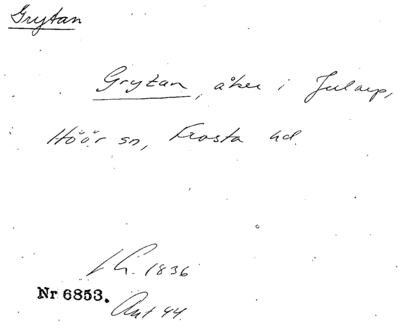 Grytan
Grytan, åker i Jularp,
Höör sn, Frosta hd.
1836
Nr 6853.
Ant 44.